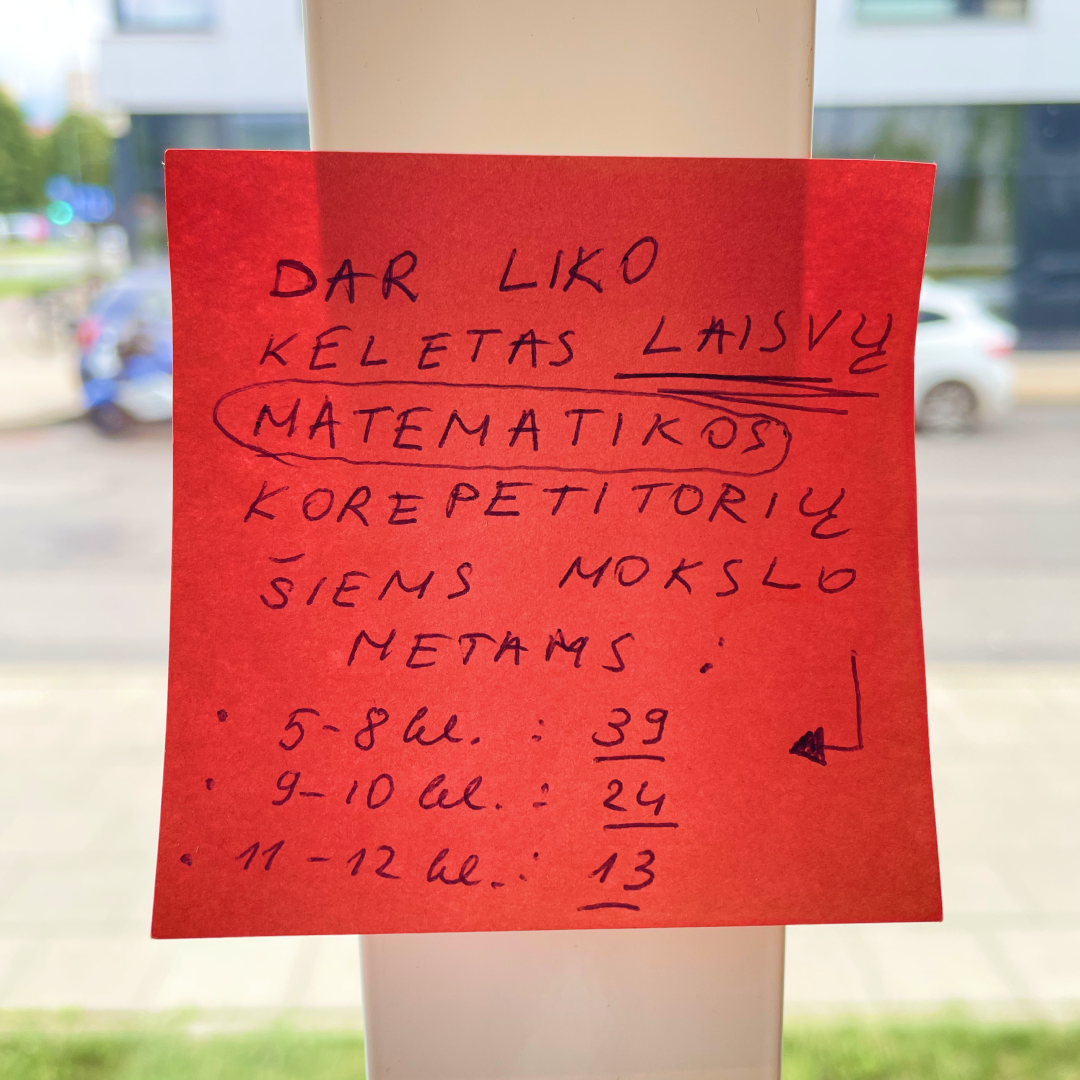 DAR LIKO
KELETAS LAISVŲ
MATEMATIKOS
KOREPETITORIŲ
ŠIEMS MOKSLO
METAMS :
• 5-8 kl. : 39
• 9-10 kl. : 24
• 11-12 kl. : 13